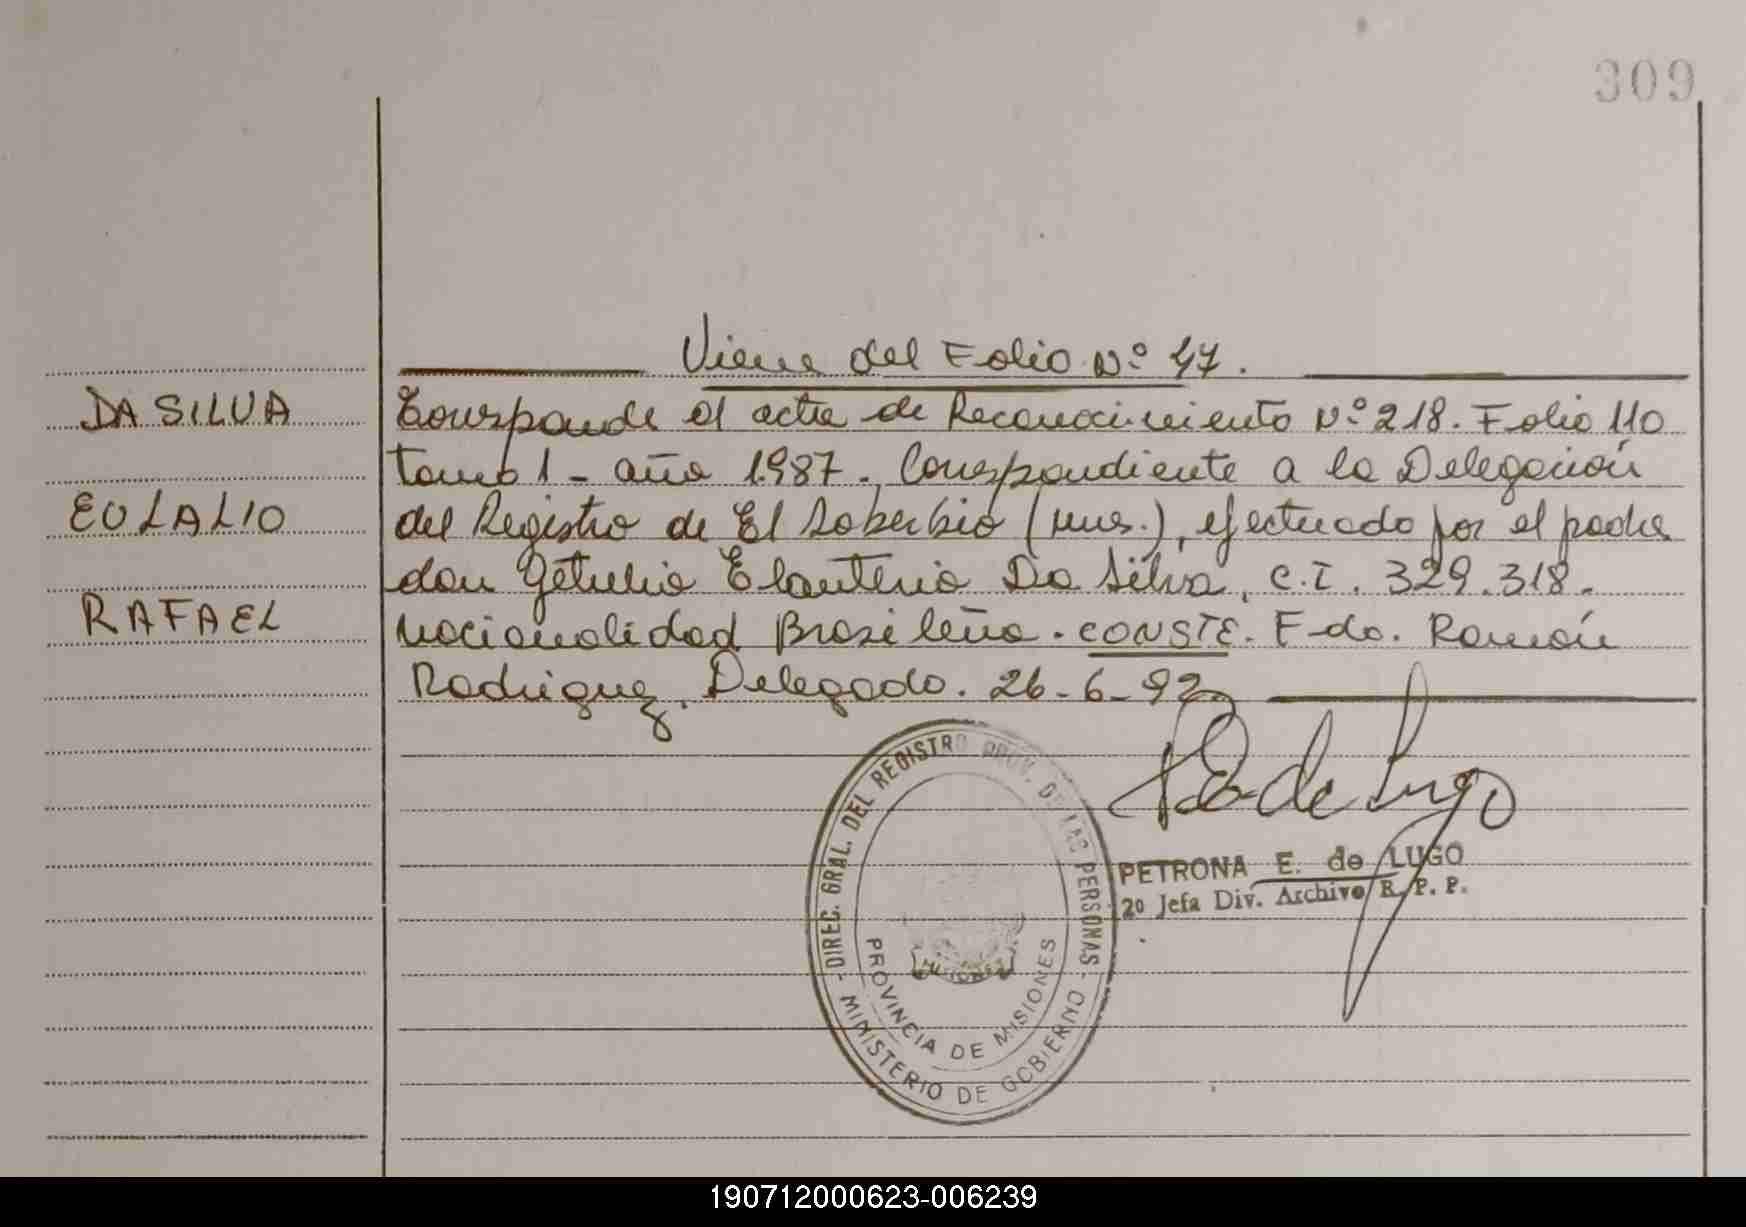 309
Viene del Folio Nº 47.
DA SILVA
Corresponde el acta de Reconocimiento Nº 218. Folio 110
tomo 1 - año 1987. Correspondiente a la Delegación
EULALIO
del Registro de El Soberbio (Mnes.), efectuado por el padre
don Getulio Elauterio Da Silva, C.I. 329.318.
RAFAEL
Nacionalidad Brasileña. CONSTE. Fdo. Ramón
Rodriguez. Delegado. 26-6-92
PETRONA E. de LUGO
2º Jefa Div. Archivo R. P. P.
DIREC. GRAL. DEL REGISTRO PROV. DE LAS PERSONAS
MISIONES
PROVINCIA DE MISIONES
MINISTERIO DE GOBIERNO
190712000623-006239